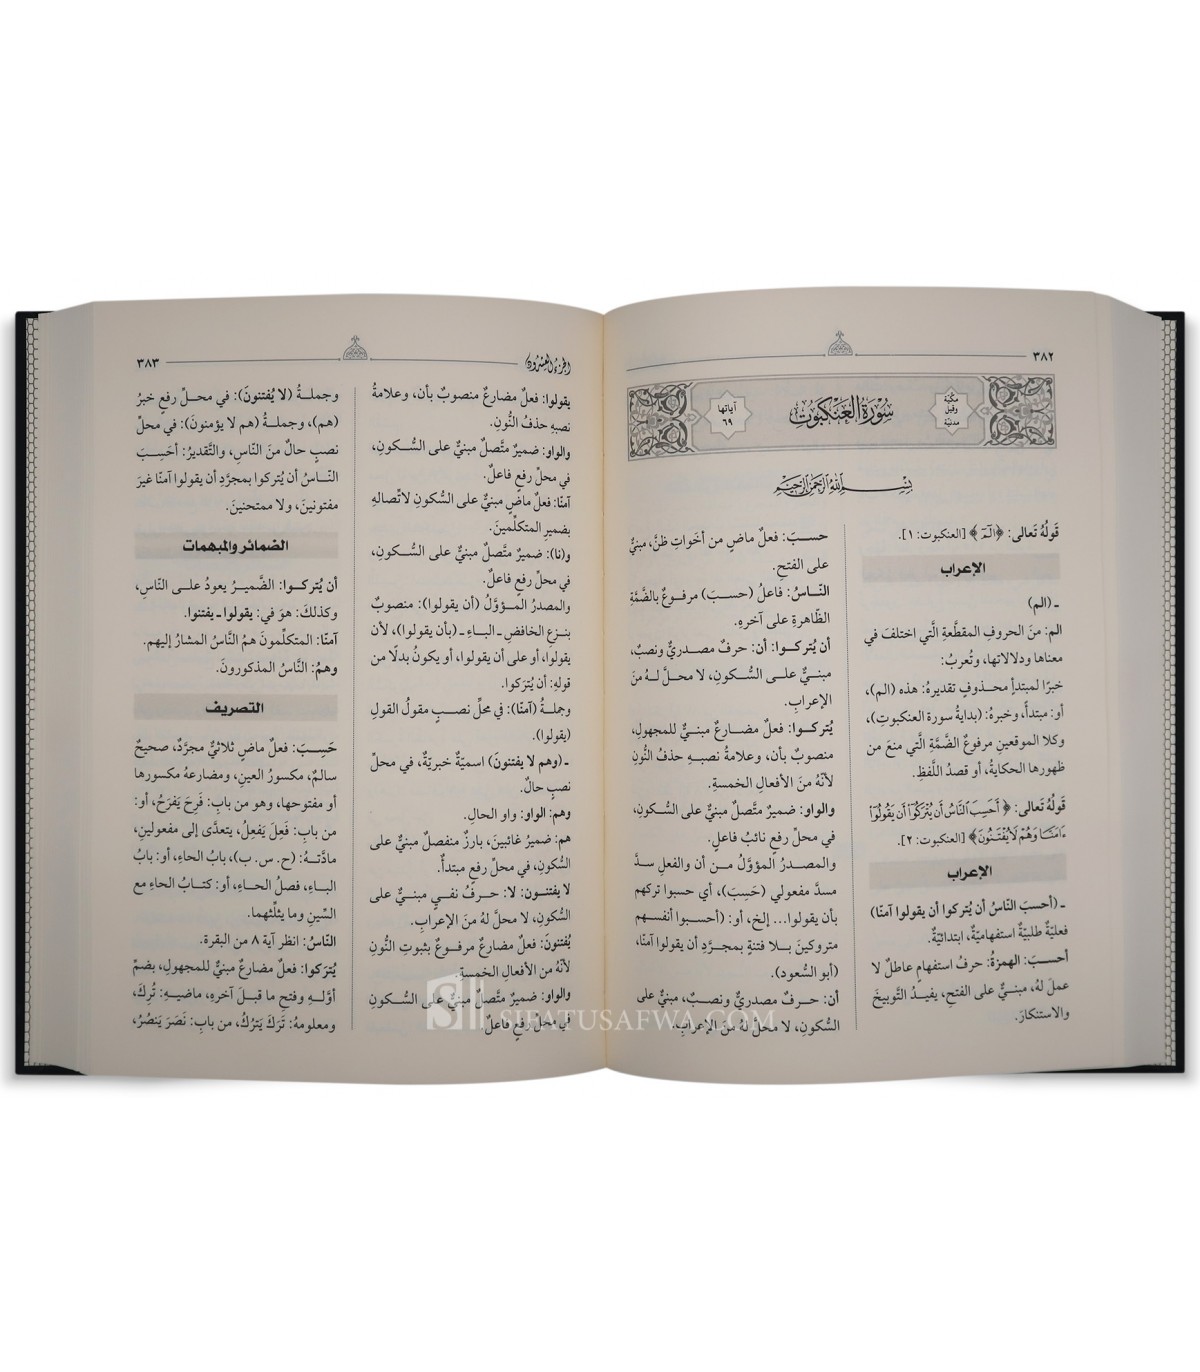 ٣٨٢
مكيّة
وقيل
مدنيّة
سُورَةُ العَنْكَبُوتِ
آياتها
٦٩
بِسْمِ اللَّهِ الرَّحْمَنِ الرَّحِيمِ
قَولُهُ تَعالى: ﴿الٓمٓ﴾ [العنكبوت: ١].
الإعراب
ـ (الم)
الم: منَ الحروفِ المقطَّعةِ الَّتي اختلفَ في
معناها ودلالاتها، وتُعربُ:
خبرًا لمبتدأٍ محذوفٍ تقديرهُ: هذه (الم)،
أو: مبتدأً، وخبرهُ: (بدايةُ سورة العنكبوتِ)،
وكلا الموقعين مرفوعٌ الضَّمَّةِ الَّتي منعَ من
ظهورها الحكايةُ، أو قصدُ اللَّفظِ.
قَولُهُ تَعالى: ﴿أَحَسِبَ النَّاسُ أَن يُتْرَكُوٓا۟ أَن يَقُولُوٓا۟
ءَامَنَّا وَهُمْ لَا يُفْتَنُونَ﴾ [العنكبوت: ٢].
الإعراب
ـ (أحسبَ النّاسُ أن يُتركوا أن يقولوا آمنّا)
فعليّةٌ طلبيّةٌ استفهاميّةٌ، ابتدائيّةٌ.
أحسبَ: الهمزةُ: حرفُ استفهامٍ عاطلٌ لا
عملَ لهُ، مبنيٌّ على الفتحِ، يفيدُ التَّوبيخَ
والاستنكارَ.
حسبَ: فعلٌ ماضٍ من أخَواتِ ظنَّ، مبنيٌّ
على الفتحِ.
النّاسُ: فاعلُ (حسبَ) مرفوعٌ بالضَّمَّةِ
الظّاهرةِ على آخرهِ.
أن يُتركوا: أن: حرفٌ مصدريٌّ ونصبٌ،
مبنيٌّ على السُّكونِ، لا محلَّ لهُ منَ
الإعرابِ.
يُتركوا: فعلٌ مضارعٌ مبنيٌّ للمجهولِ،
منصوبٌ بأن، وعلامةُ نصبهِ حذفُ النُّونِ
لأنّهُ منَ الأفعالِ الخمسةِ.
والواو: ضميرٌ متَّصلٌ مبنيٌّ على السُّكونِ،
في محلِّ رفعٍ نائبُ فاعلٍ.
والمصدرُ المؤوَّلُ من أن والفعلِ سدَّ
مسدَّ مفعولي (حَسِبَ)، أي حسبوا تركهم
بأن يقولوا... إلخ، أو: (أحسبوا أنفسهم
متروكينَ بلا فتنةٍ بمجرَّدِ أن يقولوا آمنّا،
(أبو السُّعود).
أن: حرفٌ مصدريٌّ ونصبٌ، مبنيٌّ على
السُّكونِ، لا محلَّ لهُ منَ الإعرابِ.
الجُزءُ العِشرُون
٣٨٣
يقولوا: فعلٌ مضارعٌ منصوبٌ بأن، وعلامةُ
نصبهِ حذفُ النُّونِ.
والواو: ضميرٌ متَّصلٌ مبنيٌّ على السُّكونِ،
في محلِّ رفعٍ فاعلٌ.
آمنّا: فعلٌ ماضٍ مبنيٌّ على السُّكونِ لاتّصالهِ
بضميرِ المتكلّمينَ.
و(نا): ضميرٌ متَّصلٌ مبنيٌّ على السُّكونِ،
في محلِّ رفعٍ فاعلٌ.
والمصدرُ المؤوَّلُ (أن يقولوا): منصوبٌ
بنزعِ الخافضِ ـ الباءِ ـ (بأن يقولوا)، لأن
يقولوا، أو على أن يقولوا، أو يكونُ بدلًا من
قولهِ: أن يُترَكوا.
وجملةُ (آمنّا): في محلِّ نصبٍ مقولُ القولِ
(يقولوا).
ـ (وهم لا يفتنونَ) اسميّةٌ خبريّةٌ، في محلِّ
نصبِ حالٍ.
وهم: الواو: واو الحالِ.
هم: ضميرُ غائبينَ، بارزٌ منفصلٌ مبنيٌّ على
السُّكونِ، في محلِّ رفعِ مبتدأٍ.
لا يفتنون: لا: حرفُ نفيٍ مبنيٌّ على
السُّكونِ، لا محلَّ لهُ منَ الإعرابِ.
يُفْتنونَ: فعلٌ مضارعٌ مرفوعٌ بثبوتِ النُّونِ
لأنّهُ من الأفعالِ الخمسةِ.
والواو: ضميرٌ متَّصلٌ مبنيٌّ على السُّكونِ
في محلِّ رفعٍ فاعلٌ.
وجملةُ (لا يُفتنونَ): في محلِّ رفعِ خبرُ
(هم)، وجملةُ (هم لا يؤمنونَ): في محلِّ
نصبِ حالٌ منَ النّاسِ، والتَّقديرُ: أحَسِبَ
النّاسُ أن يُتركوا بمجرَّدِ أن يقولوا آمنّا غيرَ
مفتونينَ، ولا ممتحنينَ.
الضمائر والمبهمات
أن يُتركوا: الضَّميرُ يعودُ على النّاسِ،
وكذلكَ: هوَ في: يقولوا ـ يفتنوا.
آمنّا: المتكلّمونَ همُ النّاسُ المشارُ إليهم.
وهمُ: النّاسُ المذكورونَ.
التصريف
حَسِبَ: فعلٌ ماضٍ ثلاثيٌّ مجرَّدٌ، صحيحٌ
سالمٌ، مكسورُ العينِ، ومضارعهُ مكسورها
أو مفتوحها، وهو من بابِ: فَرِحَ يَفْرَحُ، أو:
من بابِ: فَعِلَ يَفعِلُ، يتعدَّى إلى مفعولينِ،
مادّتهُ: (ح. س. ب)، بابُ الحاءِ، أو: بابُ
الباءِ، فصلُ الحاءِ، أو: كتابُ الحاءِ مع
السِّينِ وما يثلّثهما.
النّاسُ: انظر آية ٨ من البقرة.
يُترَكوا: فعلٌ مضارعٌ مبنيٌّ للمجهولِ، بضمِّ
أوَّلهِ وفتحِ ما قبلَ آخرهِ، ماضيهِ: تُرِكَ،
ومعلومهُ: تَرَكَ يَترُكُ، من بابِ: نَصَرَ يَنصُرُ،
SIFATUSAFWA.COM